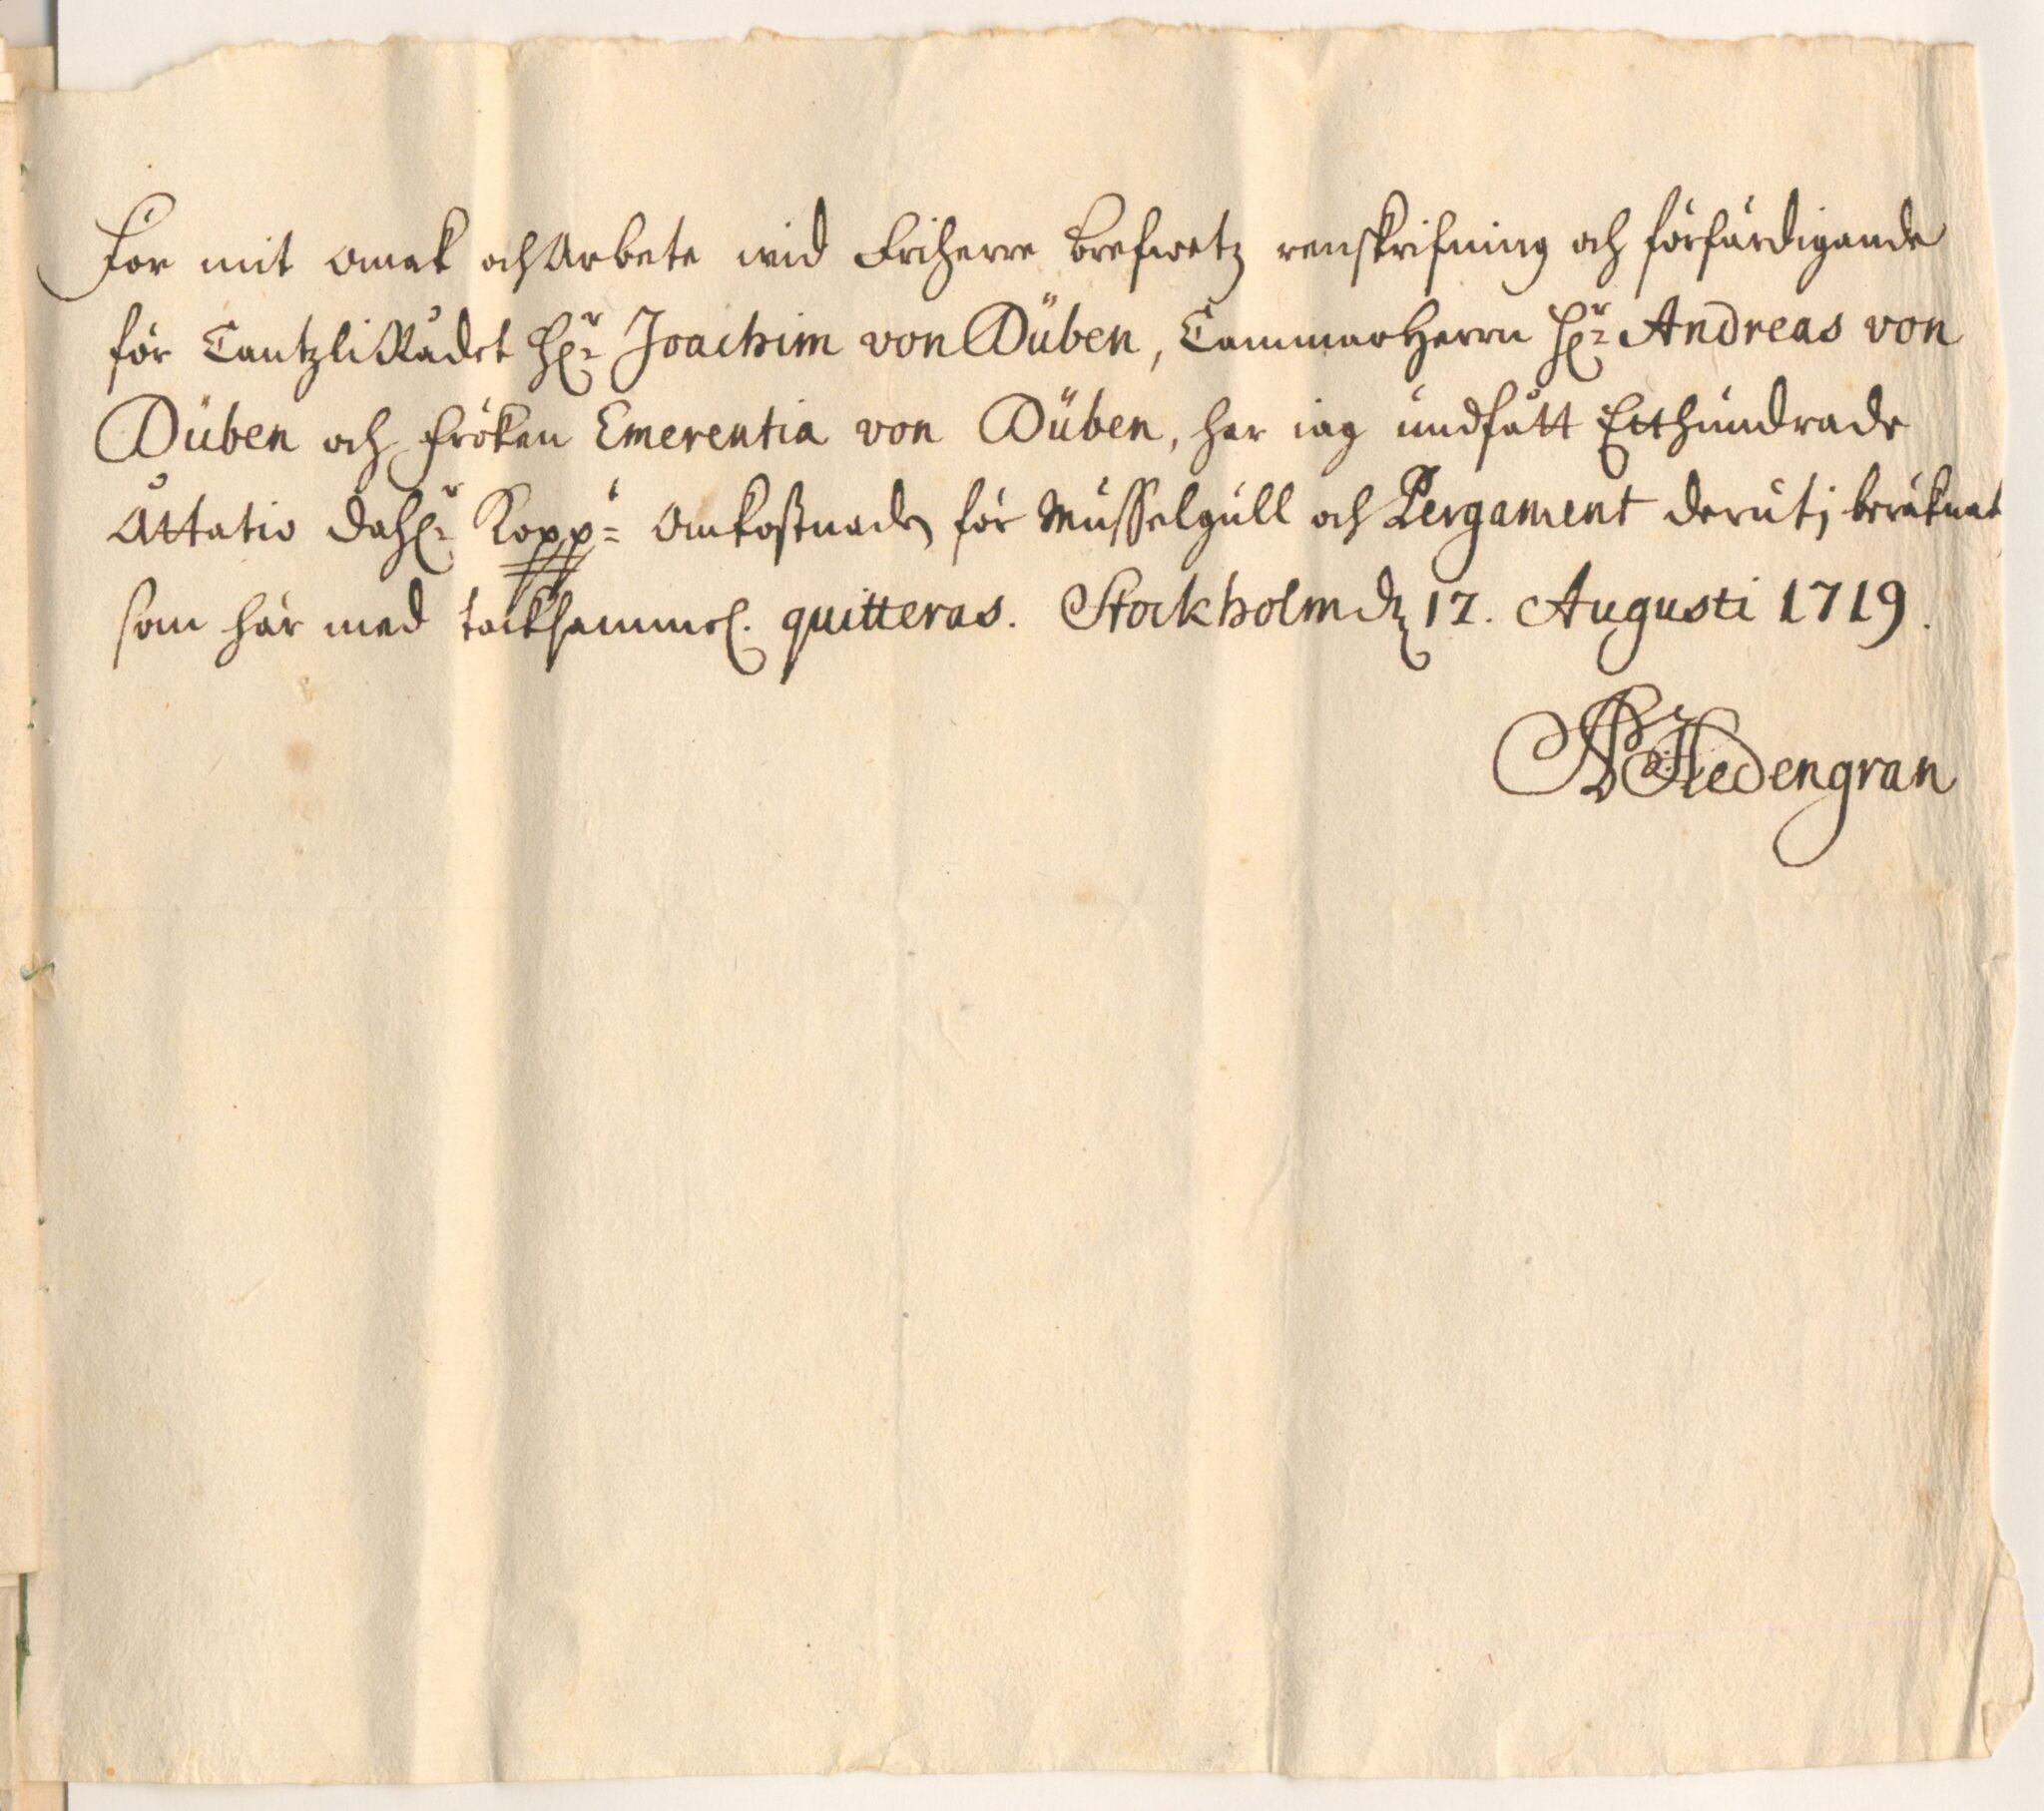 För mit omak och Arbete wid Friherre brefwetz renskrifning och förfärdigande
för CantzliRådet Hr: Joachim von Düben, CammarHerrn Hr: Andreas von
Düben och Fröken Emerentia von Düben, har iag undfått Etthundrade
Åttatio dahlr: Kopp:r Omkostnaden för Musselgull och Pergament derutj beräknat
som här med tacksammel. quitteras. Stockholm dn 17. Augusti 1719.
Hedengran